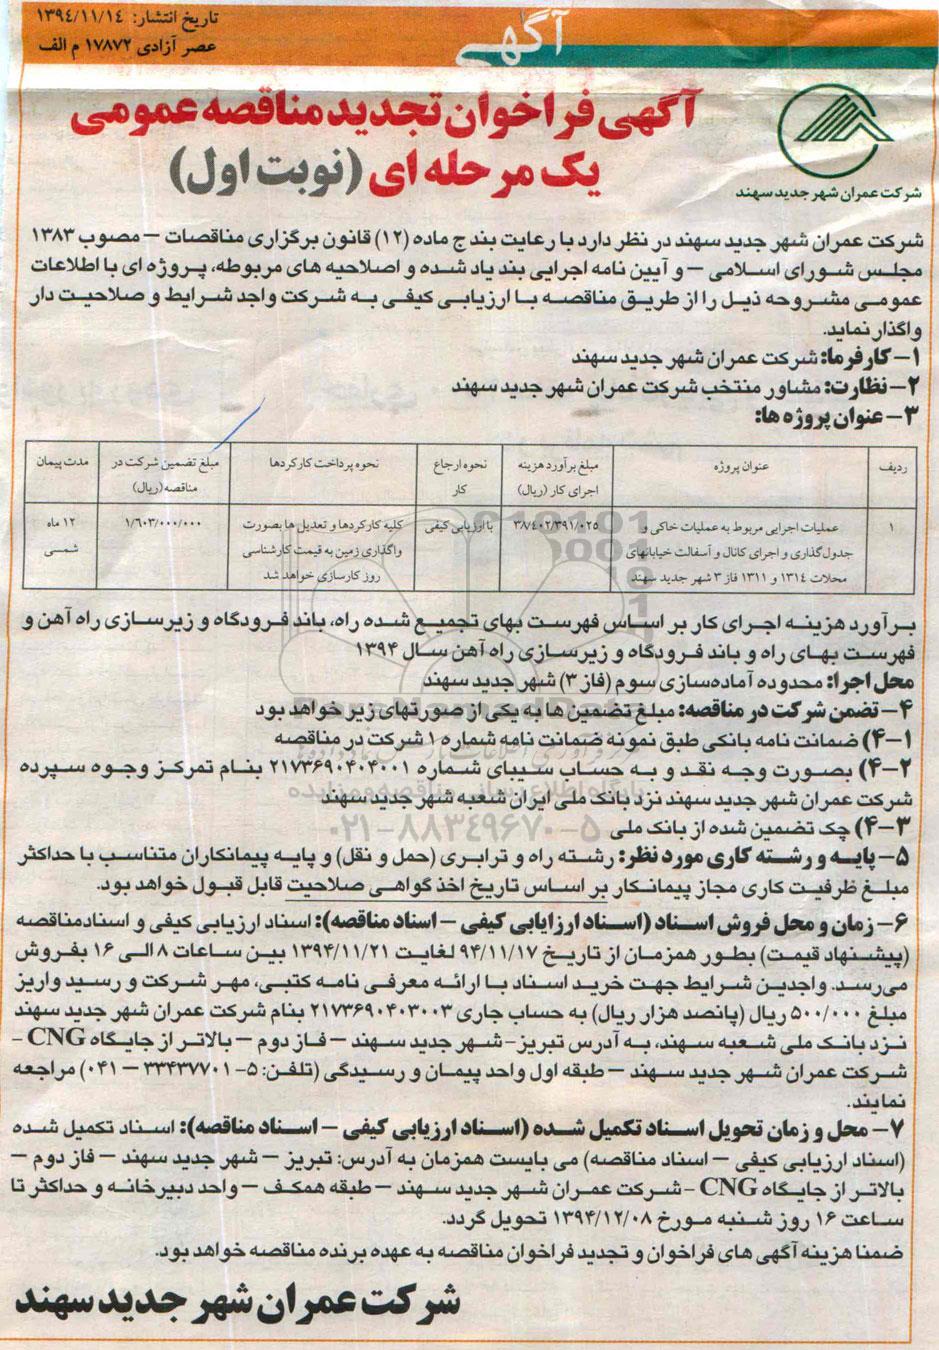 تاریخ انتشار: ۱۳۹٤/۱۱/۱٤
عصر آزادی ۱۷۸۷۲ م الف
آگهی
آگهی فراخوان تجدید مناقصه عمومی
یک مرحله ای (نوبت اول)
شرکت عمران شهر جدید سهند
شرکت عمران شهر جدید سهند در نظر دارد با رعایت بند ج ماده (۱۲) قانون برگزاری مناقصات – مصوب ۱۳۸۳
مجلس شورای اسلامی – و آیین نامه اجرایی بند یاد شده و اصلاحیه های مربوطه، پروژه ای با اطلاعات
عمومی مشروحه ذیل را از طریق مناقصه با ارزیابی کیفی به شرکت واجد شرایط و صلاحیت دار
واگذار نماید.
۱- کارفرما: شرکت عمران شهر جدید سهند
۲- نظارت: مشاور منتخب شرکت عمران شهر جدید سهند
۳- عنوان پروژه ها:
ردیف
عنوان پروژه
مبلغ برآورد هزینه
اجرای کار (ریال)
نحوه ارجاع
کار
نحوه پرداخت کارکردها
مبلغ تضمین شرکت در
مناقصه (ریال)
مدت پیمان
۱
عملیات اجرایی مربوط به عملیات خاکی و
جدول گذاری و اجرای کانال و آسفالت خیابانهای
محلات ۱۳۱٤ و ۱۳۱۱ فاز ۳ شهر جدید سهند
۳۸/٤۰۲/۳۹۱/۰۲۵
با ارزیابی کیفی
کلیه کارکردها و تعدیل ها بصورت
واگذاری زمین به قیمت کارشناسی
روز کارسازی خواهد شد
۱/٦۰۳/۰۰۰/۰۰۰
۱۲ ماه
شمسی
برآورد هزینه اجرای کار بر اساس فهرست بهای تجمیع شده راه، باند فرودگاه و زیرسازی راه آهن و
فهرست بهای راه و باند فرودگاه و زیرسازی راه آهن سال ۱۳۹۴
محل اجرا: محدوده آماده‌سازی سوم (فاز ۳) شهر جدید سهند
۴- تضمن شرکت در مناقصه: مبلغ تضمین ها به یکی از صورتهای زیر خواهد بود
۱-۴) ضمانت نامه بانکی طبق نمونه ضمانت نامه شماره ۱ شرکت در مناقصه
۲-۴) بصورت وجه نقد و به حساب سیبای شماره ۲۱۷۳۶۹۰۴۰۴۰۰۱ بنام تمرکز وجوه سپرده
شرکت عمران شهر جدید سهند نزد بانک ملی ایران شعبه شهر جدید سهند
۳-۴) چک تضمین شده از بانک ملی
۰۲۱-۸۸۳۴۹۶۷۰-۵
۵- پایه و رشته کاری مورد نظر: رشته راه و ترابری (حمل و نقل) و پایه پیمانکاران متناسب با حداکثر
مبلغ ظرفیت کاری مجاز پیمانکار بر اساس تاریخ اخذ گواهی صلاحیت قابل قبول خواهد بود.
۶- زمان و محل فروش اسناد (اسناد ارزایابی کیفی – اسناد مناقصه): اسناد ارزیابی کیفی و اسناد مناقصه
(پیشنهاد قیمت) بطور همزمان از تاریخ ۹۴/۱۱/۱۷ لغایت ۱۳۹۴/۱۱/۲۱ بین ساعات ۸ الی ۱۶ بفروش
می‌رسد. واجدین شرایط جهت خرید اسناد با ارائه معرفی نامه کتبی، مهر شرکت و رسید واریز
مبلغ ۵۰۰/۰۰۰ ریال (پانصد هزار ریال) به حساب جاری ۲۱۷۳۶۹۰۴۰۳۰۰۳ بنام شرکت عمران شهر جدید سهند
نزد بانک ملی شعبه سهند، به آدرس تبریز – شهر جدید سهند – فاز دوم – بالاتر از جایگاه CNG -
شرکت عمران شهر جدید سهند – طبقه اول واحد پیمان و رسیدگی (تلفن: ۵- ۳۳۴۳۷۷۰۱ – ۰۴۱) مراجعه
نمایند.
۷- محل و زمان تحویل اسناد تکمیل شده (اسناد ارزیابی کیفی – اسناد مناقصه): اسناد تکمیل شده
(اسناد ارزیابی کیفی – اسناد مناقصه) می بایست همزمان به آدرس: تبریز – شهر جدید سهند – فاز دوم –
بالاتر از جایگاه CNG - شرکت عمران شهر جدید سهند – طبقه همکف – واحد دبیرخانه و حداکثر تا
ساعت ۱۶ روز شنبه مورخ ۱۳۹۴/۱۲/۰۸ تحویل گردد.
ضمنا هزینه آگهی های فراخوان و تجدید فراخوان مناقصه به عهده برنده مناقصه خواهد بود.
شرکت عمران شهر جدید سهند